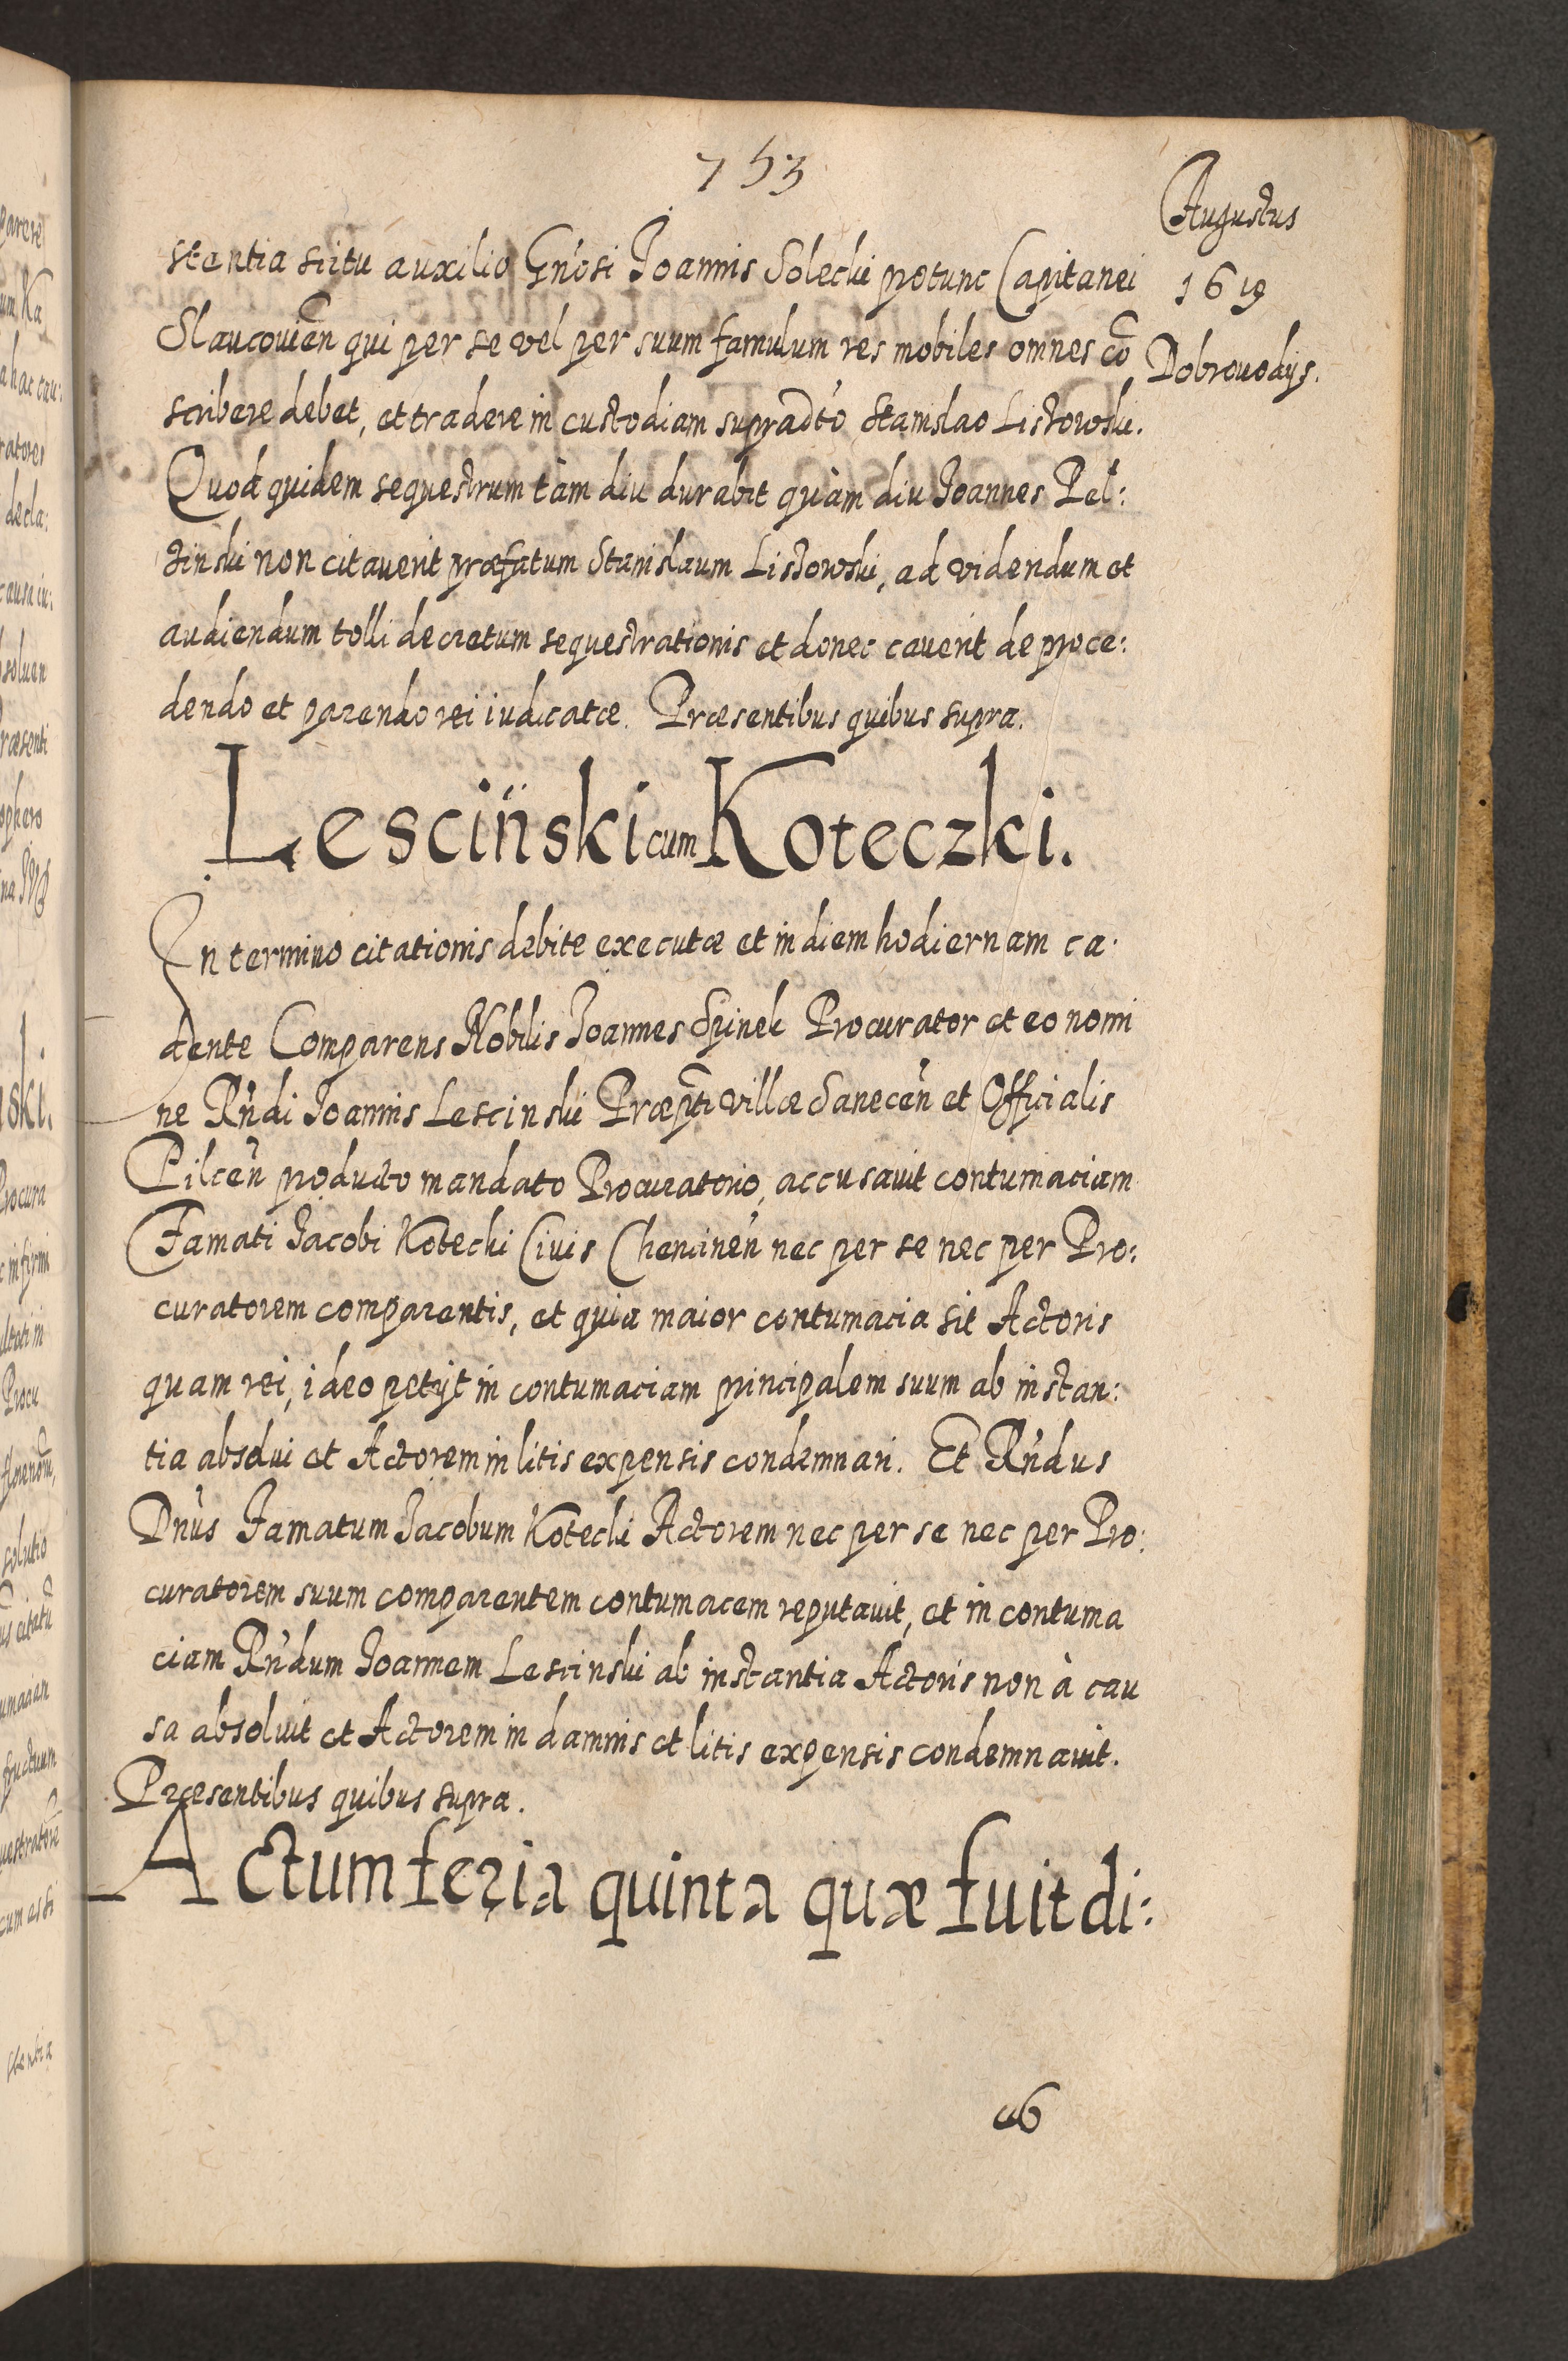 753
Augustus
1619
Dobrovodys.
stentia scitu auxilio Gnosi Joannis Solecki protunc Capitanei
Slaucouien qui per se vel per suum famulum res mobiles omnes co
scribere debet, et tradere in custodiam supradto Stanislao Listowski.
Quod quidem sequestrum tàm diu durabit quàm diu Joannes Pal:
tinski non citauerit præfatum Stanislaum Listowski, ad videndum et
audiendum tolli decretum sequestrationis et donec cauerit de proce:
dendo et parendo rei iudicatæ. Præsentibus quibus supra.
Lescinski cum Koteczki.
In termino citationis debite executæ et in diem hodiernam ca:
dente Comparens Nobilis Joannes Spinek Procurator et eo nomi
ne Rndi Joannis Lescinski Præpti villæ Sanecen et Officialis
Pilcen producto mandato Procuratorio, accusauit contumaciam
Famati Jacobi Kotecki Ciuis Chencinen nec per se nec per Pro:
curatorem comparentis, et quia maior contumacia sit Actoris
quam rei, ideo petijt in contumaciam principalem suum ab instan:
tia absolui et Actorem in litis expensis condemnari. Et Rndus
Dnus Famatum Jacobum Kotecki Actorem nec per se nec per Pro:
curatorem suum comparentem contumacem reputauit, et in contuma
ciam Rndum Joannem Lescinski ab instantia Actoris non à cau
sa absoluit et Actorem in damnis et litis expensis condemnauit.
Præsentibus quibus supra.
Actum feria quinta quæ fuit di: